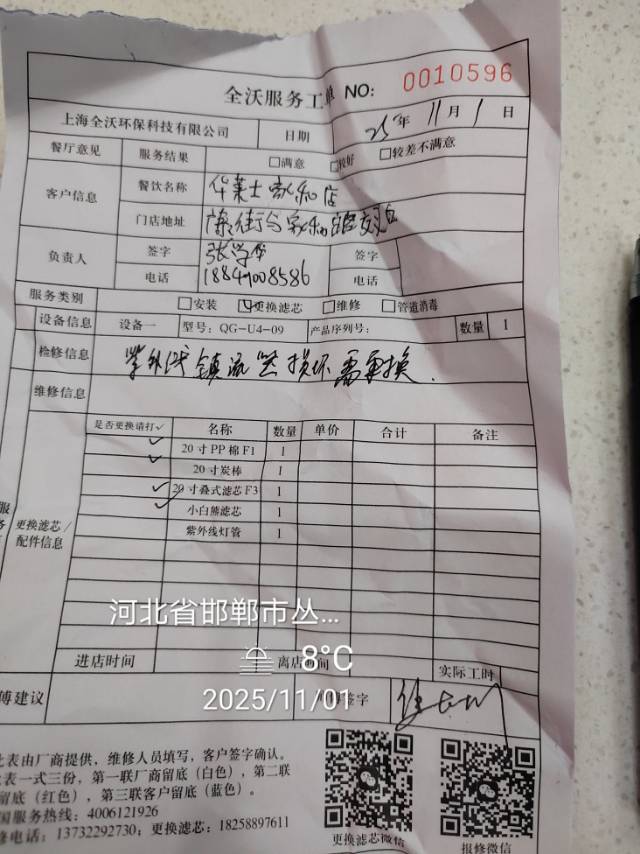 全沃服务工单 NO: 0010596
上海全沃环保科技有限公司 日期 25年 11月 1日
餐厅意见 服务结果 □满意 □较好 □较差不满意
客户信息 餐饮名称 华莱士家和店
门店地址
负责人 签字 张学 签字
电话 电话
服务类别 □安装 ☑更换滤芯 □维修 □管道消毒
设备信息 设备一 型号: QG-U4-09 产品序列号: 数量 1
检修信息 紫外线镇流器损坏需更换.
维修信息
是否更换请打✓ 名称 数量 单价 合计 备注
✓ 20寸PP棉F1 1
✓ 20寸炭棒 1
✓ 20寸叠式滤芯F3 1
✓ 小白熊滤芯 1
紫外线灯管 1
更换滤芯/
配件信息
河北省邯郸市丛...
进店时间 离店时间 实际工时
8°C
2025/11/01
傅建议 签字
此表由厂商提供，维修人员填写，客户签字确认。
表一式三份，第一联厂商留底（白色），第二联
留底（红色），第三联客户留底（蓝色）。
国服务热线：4006121926
修电话：13732292730；更换滤芯：18258897611
更换滤芯微信 报修微信